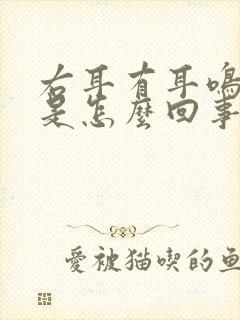 右耳有耳鳴
是怎麼回事
愛被猫喫的魚